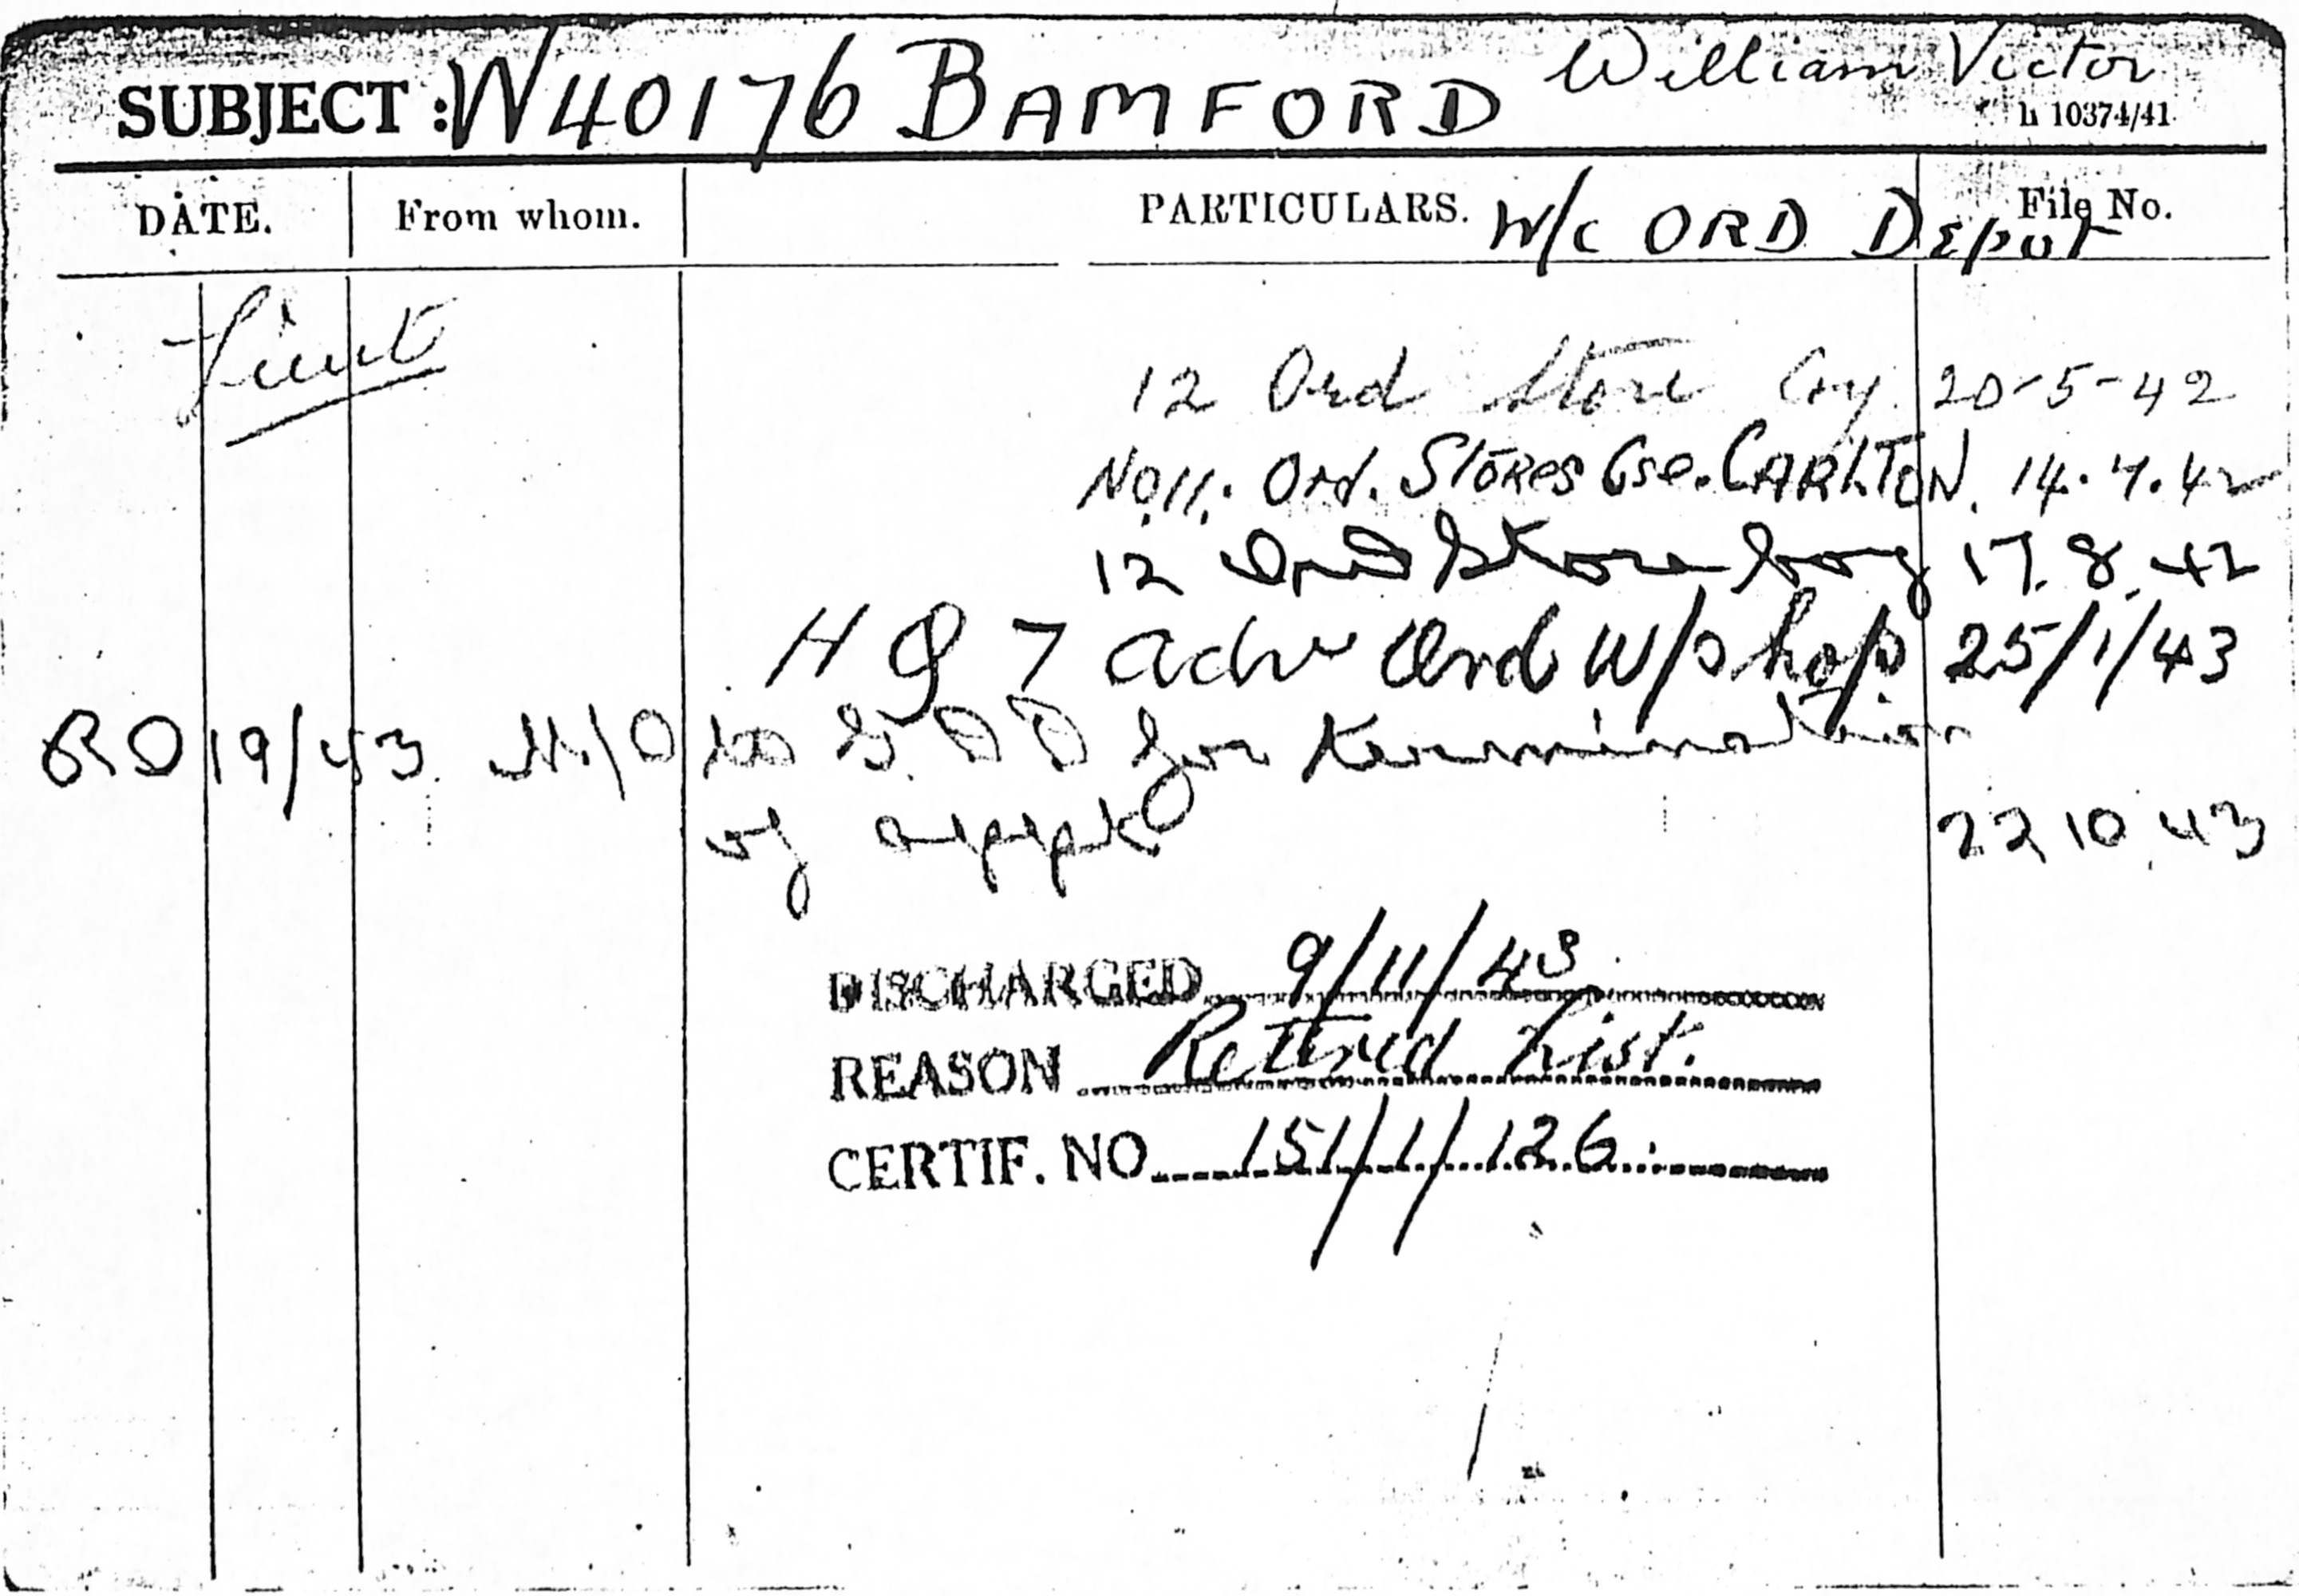 SUBJECT : W40176 BAMFORD William Victor
h 10374/41
DATE. From whom. PARTICULARS. W/C ORD DEpot File No.
Lieut
12 Ord Store Coy 20-5-42
No 11. Ord. STORES Cse. CARLTON. 14.7.42
12 Ord Store Coy 17.8.42
H Q 7 Adv Ord W/shop 25/1/43
RO 19/43 M/O to G.D.D for termination
of appt 22 10 43
DISCHARGED 9/11/43
REASON Retired List.
CERTIF. NO 151/1/126.